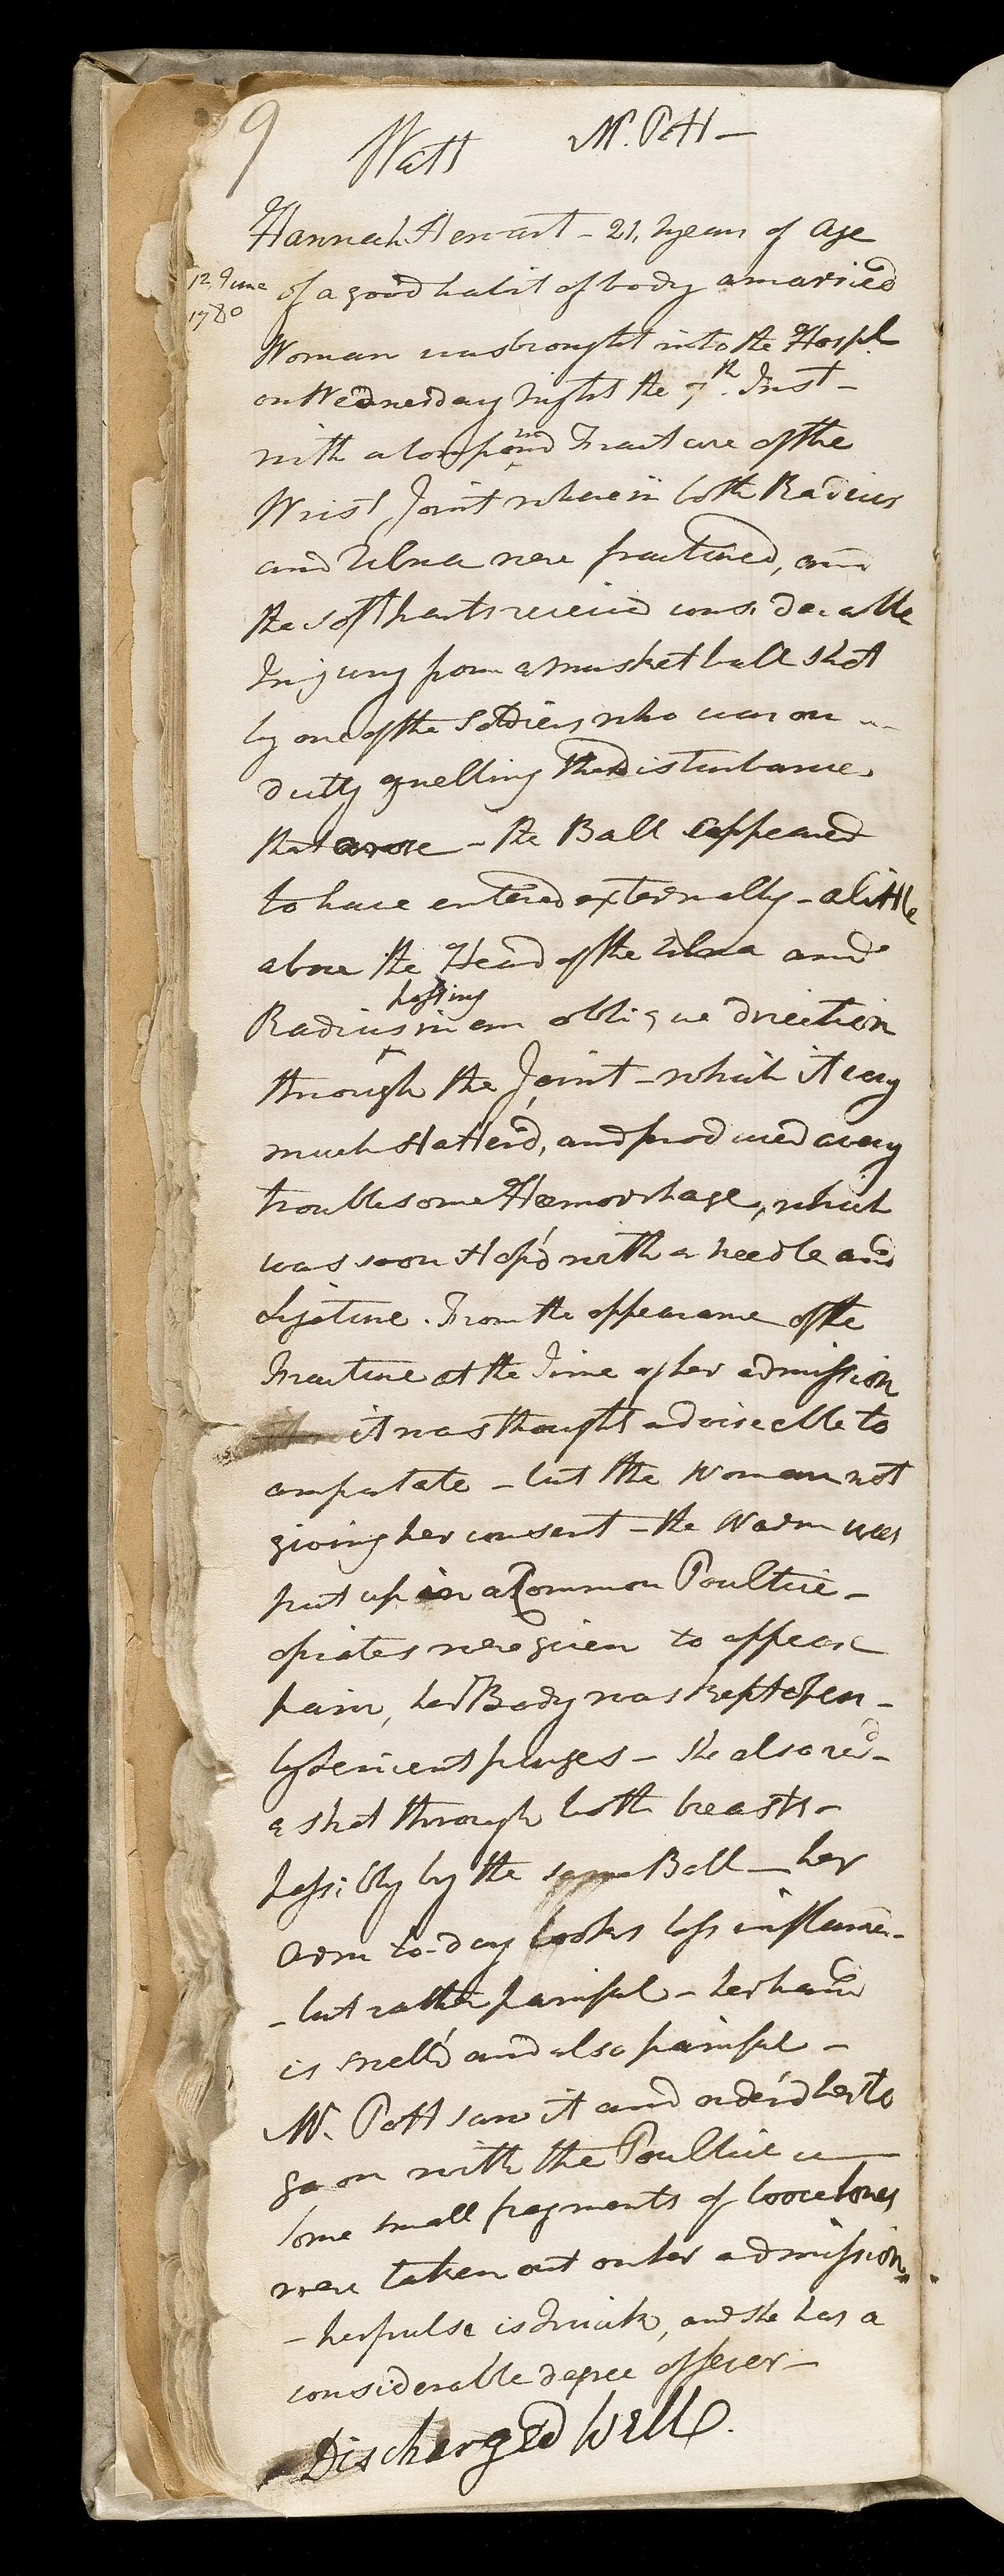 9
Watt Mr. Pott —
Hannah Stewart - 21, years of Age
12 June
1780
of a good habit of body a married
Woman was brought into the Hospl
on Wednesday Night the 7th. Inst -
with a Compound Fracture of the
Wrist Joint wherein both Radius
and Ulna were fractured, and
the soft parts received considerable
Injury from a musket ball shot
by one of the Soldiers who was on
duty quelling the disturbance
that arose - the Ball appeared
to have entered externally - a little
above the Head of the Ulna and
Radius passing in an oblique direction
through the Joint - which it very
much Shatter'd, and produced a very
troublesome Hæmorrhage, which
was soon Stop'd with a needle and
Ligature. From the appearance of the
Fracture at the Time of her admission
it was thought adviseable to
amputate - but the Woman not
giving her consent - the Warm was
put up in a Common Poultice -
opiates were given to appease
pain, her Body was kept open -
by Lenient purges - She also recd -
a shot through both breasts -
possibly by the same Ball - her
Arm to-day looks less inflam'd -
- but rather painful - her hand
is swell'd and also painful -
Mr. Pott saw it and order'd her to
go on with the Poultice
some small fragments of loose bones
were taken out on her admission
- her pulse is Quick, and she has a
considerable degree of fever -
Discharged Well.